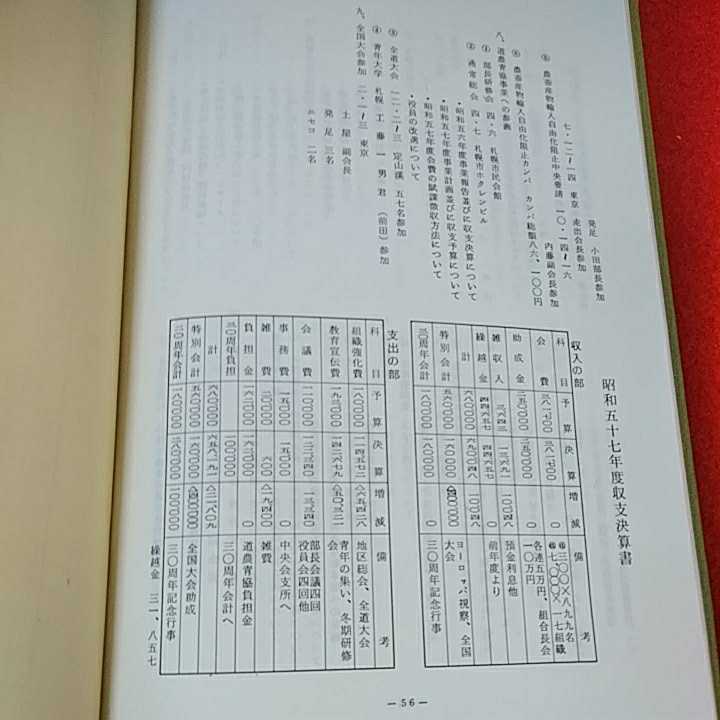 発足 小田部長参加
七・一二/一四 東京 走出会長参加
⑤ 農畜産物輸入自由化阻止中央要請 一〇・一四/一六
内藤副会長参加
⑥ 農畜産物輸入自由化阻止カンパ カンパ総額八六、一〇〇円
八、道農青協事業への参画
① 部長研修会 四・六 札幌市民会館
② 通常総会 四・七 札幌市ホクレンビル
・昭和五六年度事業報告並びに収支決算について
・昭和五七年度事業計画並びに収支予算について
・昭和五七年度会費の賦課徴収方法について
・役員の改選について
③ 全道大会 一二・二/三 定山渓 五七名参加
④ 青年大学 札幌 工藤一男君 (前田)参加
九、全国大会参加 二・一/三 東京
土屋副会長
発足 三名
ニセコ 二名
昭和五十七年度収支決算書
収入の部
科目 予算 決算 増減 備考
会費 三八一七〇〇 三八一七〇〇 〇
助成金 二五〇〇〇〇 二五〇〇〇〇 〇 各連五万円、組合長会一〇万円
雑収入 三六四三 一三六九一 一〇〇四八 預金利息他
繰越金 四四六五七 四四六五七 〇 前年度より
計 六八〇〇〇〇 六九〇〇四八 一〇〇四八
特別会計 ヨーロッパ視察、全国大会
三〇周年会計 一八〇〇〇〇 一八〇〇〇〇 〇 三〇周年記念行事
支出の部
科目 予算 決算 増減 備考
組織強化費 一八〇〇〇〇 一一四五七二 △六五四二八 地区総会、全道大会
教育宣伝費 一九三〇〇〇 一四二六七九 △五〇三二一 青年の集い、冬期研修会
会議費 一一〇〇〇〇 一二三三四〇 一三三四〇 部長会議四回 役員会四回他
事務費 一五〇〇〇 一五〇〇〇 〇 中央会支所へ
雑費 二〇〇〇〇 六〇〇 △一九四〇〇 雑費
負担金 一六二〇〇〇 一六二〇〇〇 〇 道農青協負担金
三〇周年負担 三〇周年会計へ
計 六八〇〇〇〇 六五八一九一 △二一八〇九
特別会計 全国大会助成
三〇周年会計 一八〇〇〇〇 三〇周年記念行事
繰越金 三一、八五七
— 56 —